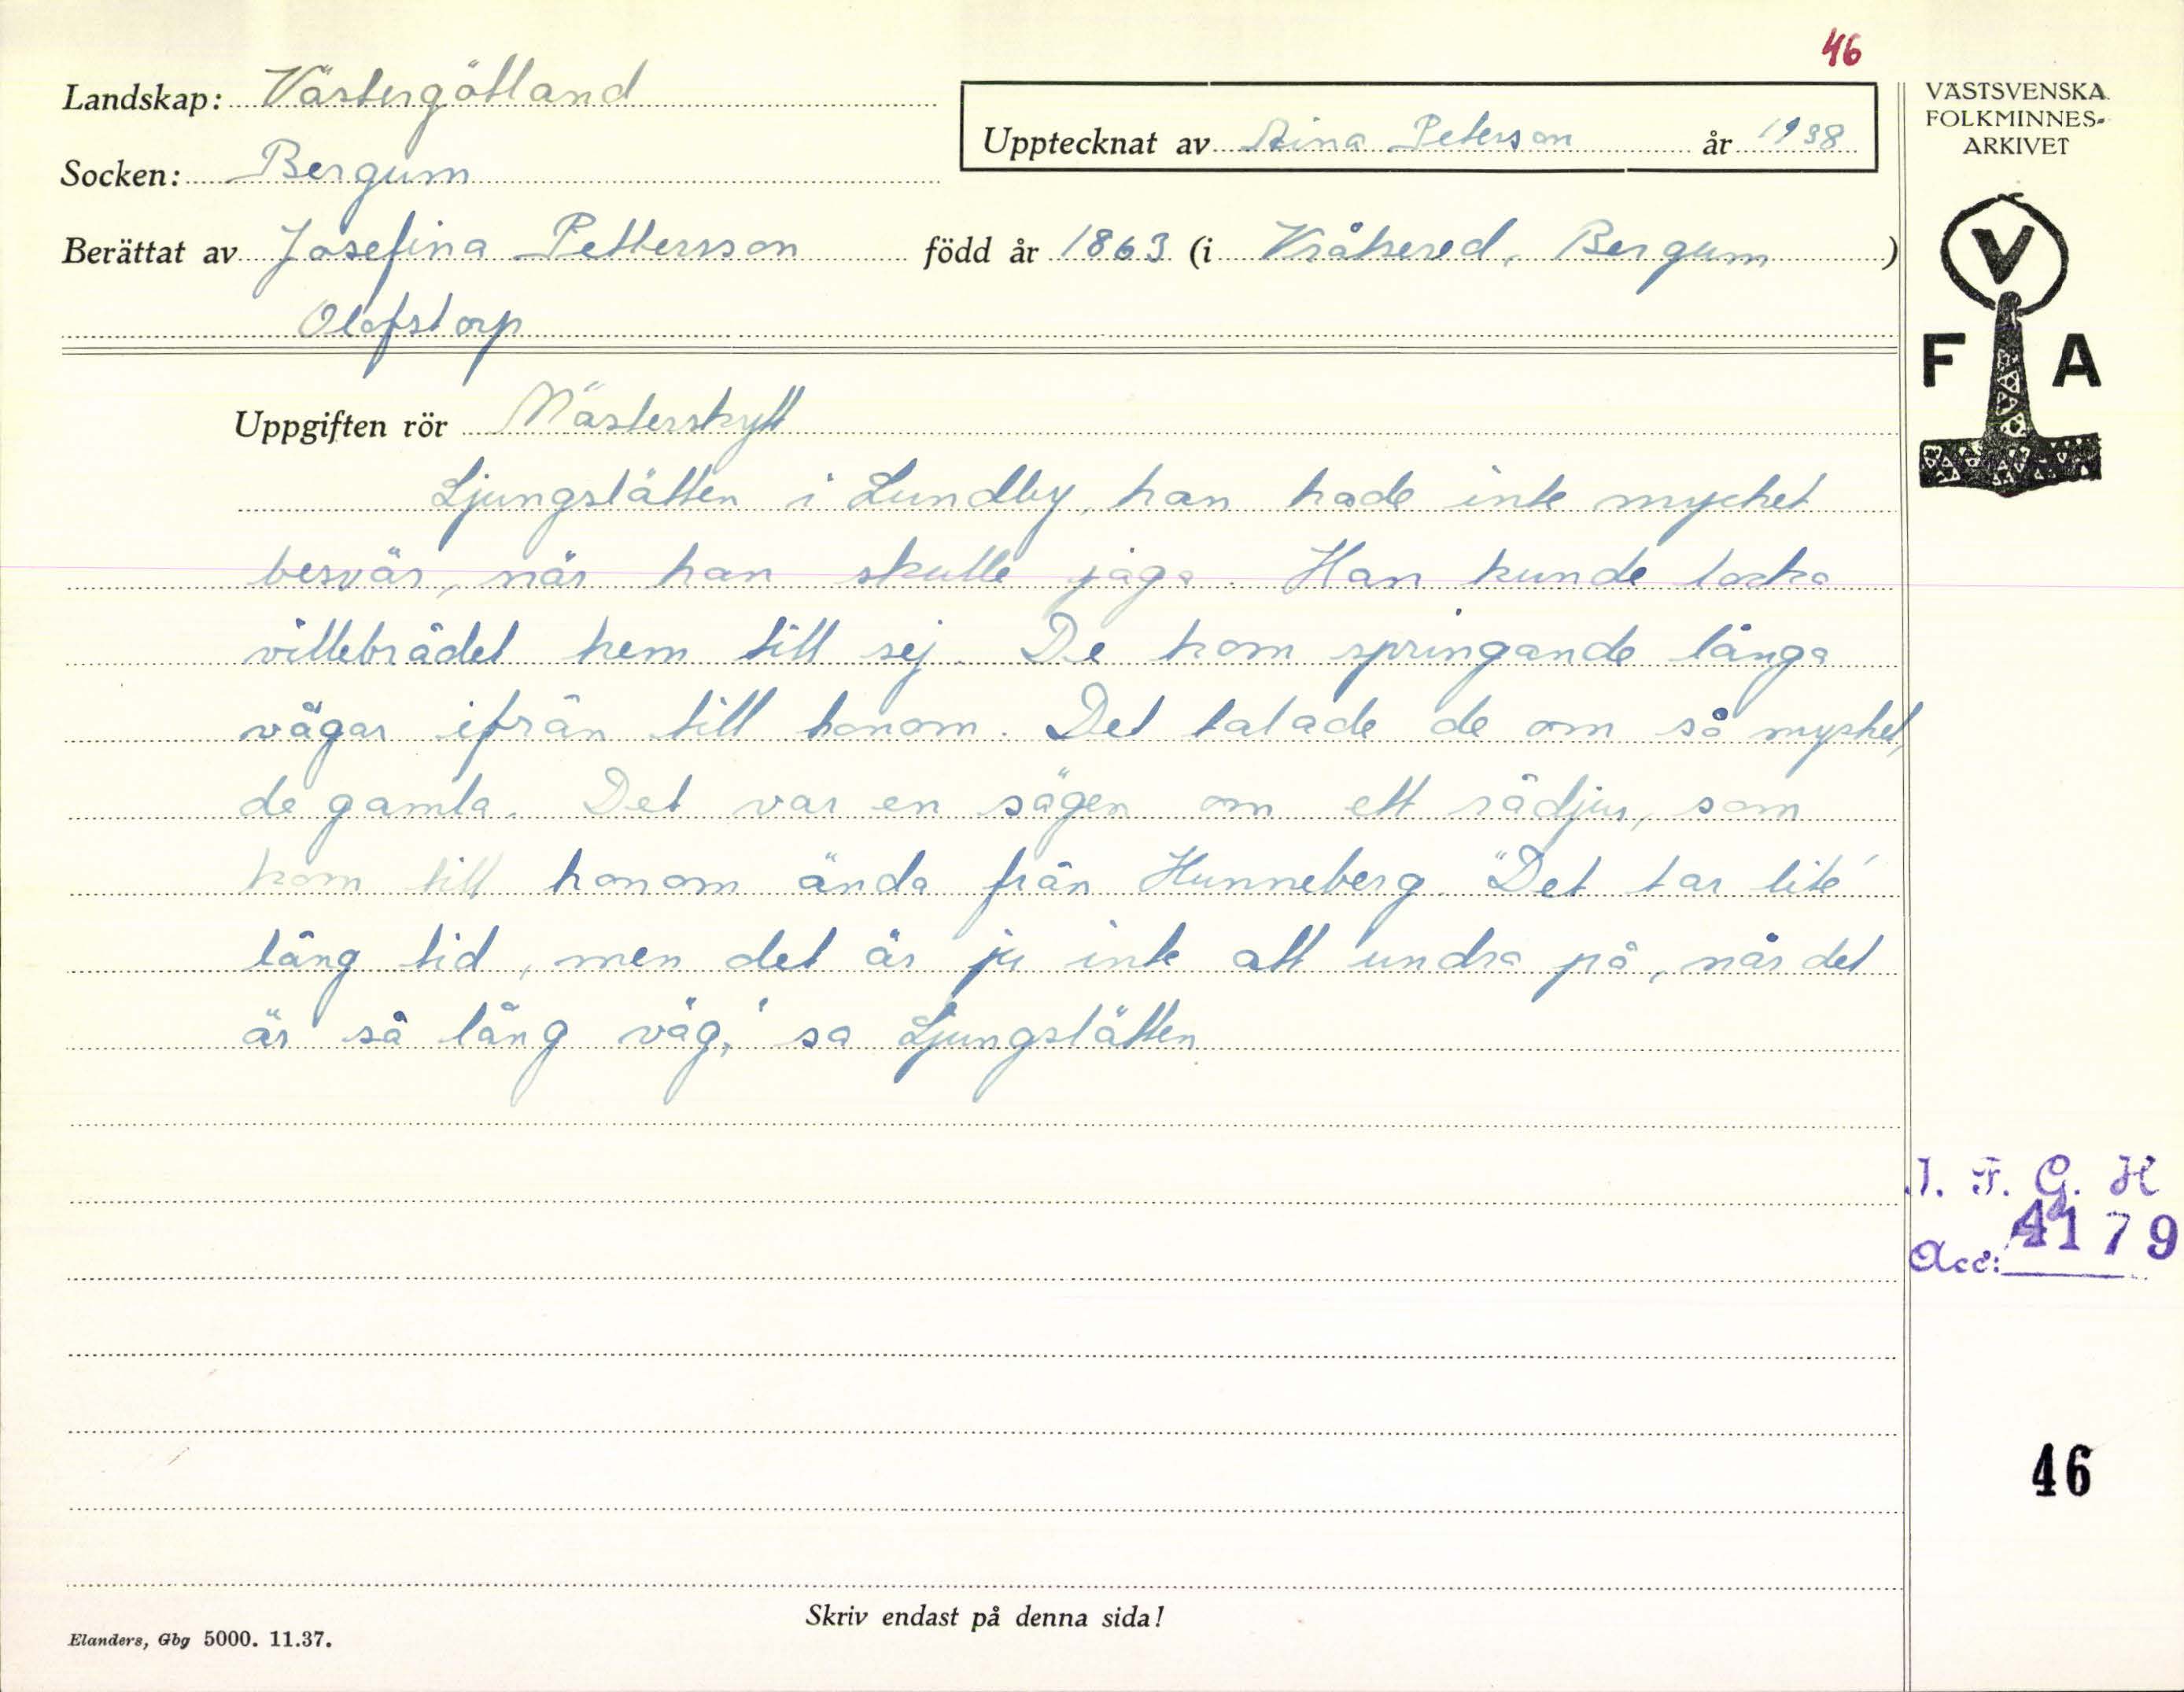 46
Landskap: Västergötland
Socken: Bergum
Upptecknat av Stina Peterson år 1938
Berättat av Josefina Pettersson född år 1863 (i Kråkered, Bergum)
Olofstorp
Uppgiften rör Mästerskytt
Ljungslätten i Lundby, han hade inte mycket
besvär, när han skulle jaga. Han kunde locka
villebrådet hem till sej. De kom springande långa
vägar ifrån till honom. Det talade de om så mycket,
de gamla. Det var en sägen om ett rådjur, som
kom till honom ända från Hunneberg. "Det tar lite
lång tid, men det är ju inte att undra på, när det
är så lång väg," sa Ljungslätten
Skriv endast på denna sida!
Elanders, Gbg 5000. 11.37.
VÄSTSVENSKA
FOLKMINNES-
ARKIVET
V
F A
I. F. G. H
Acc: 4179
46